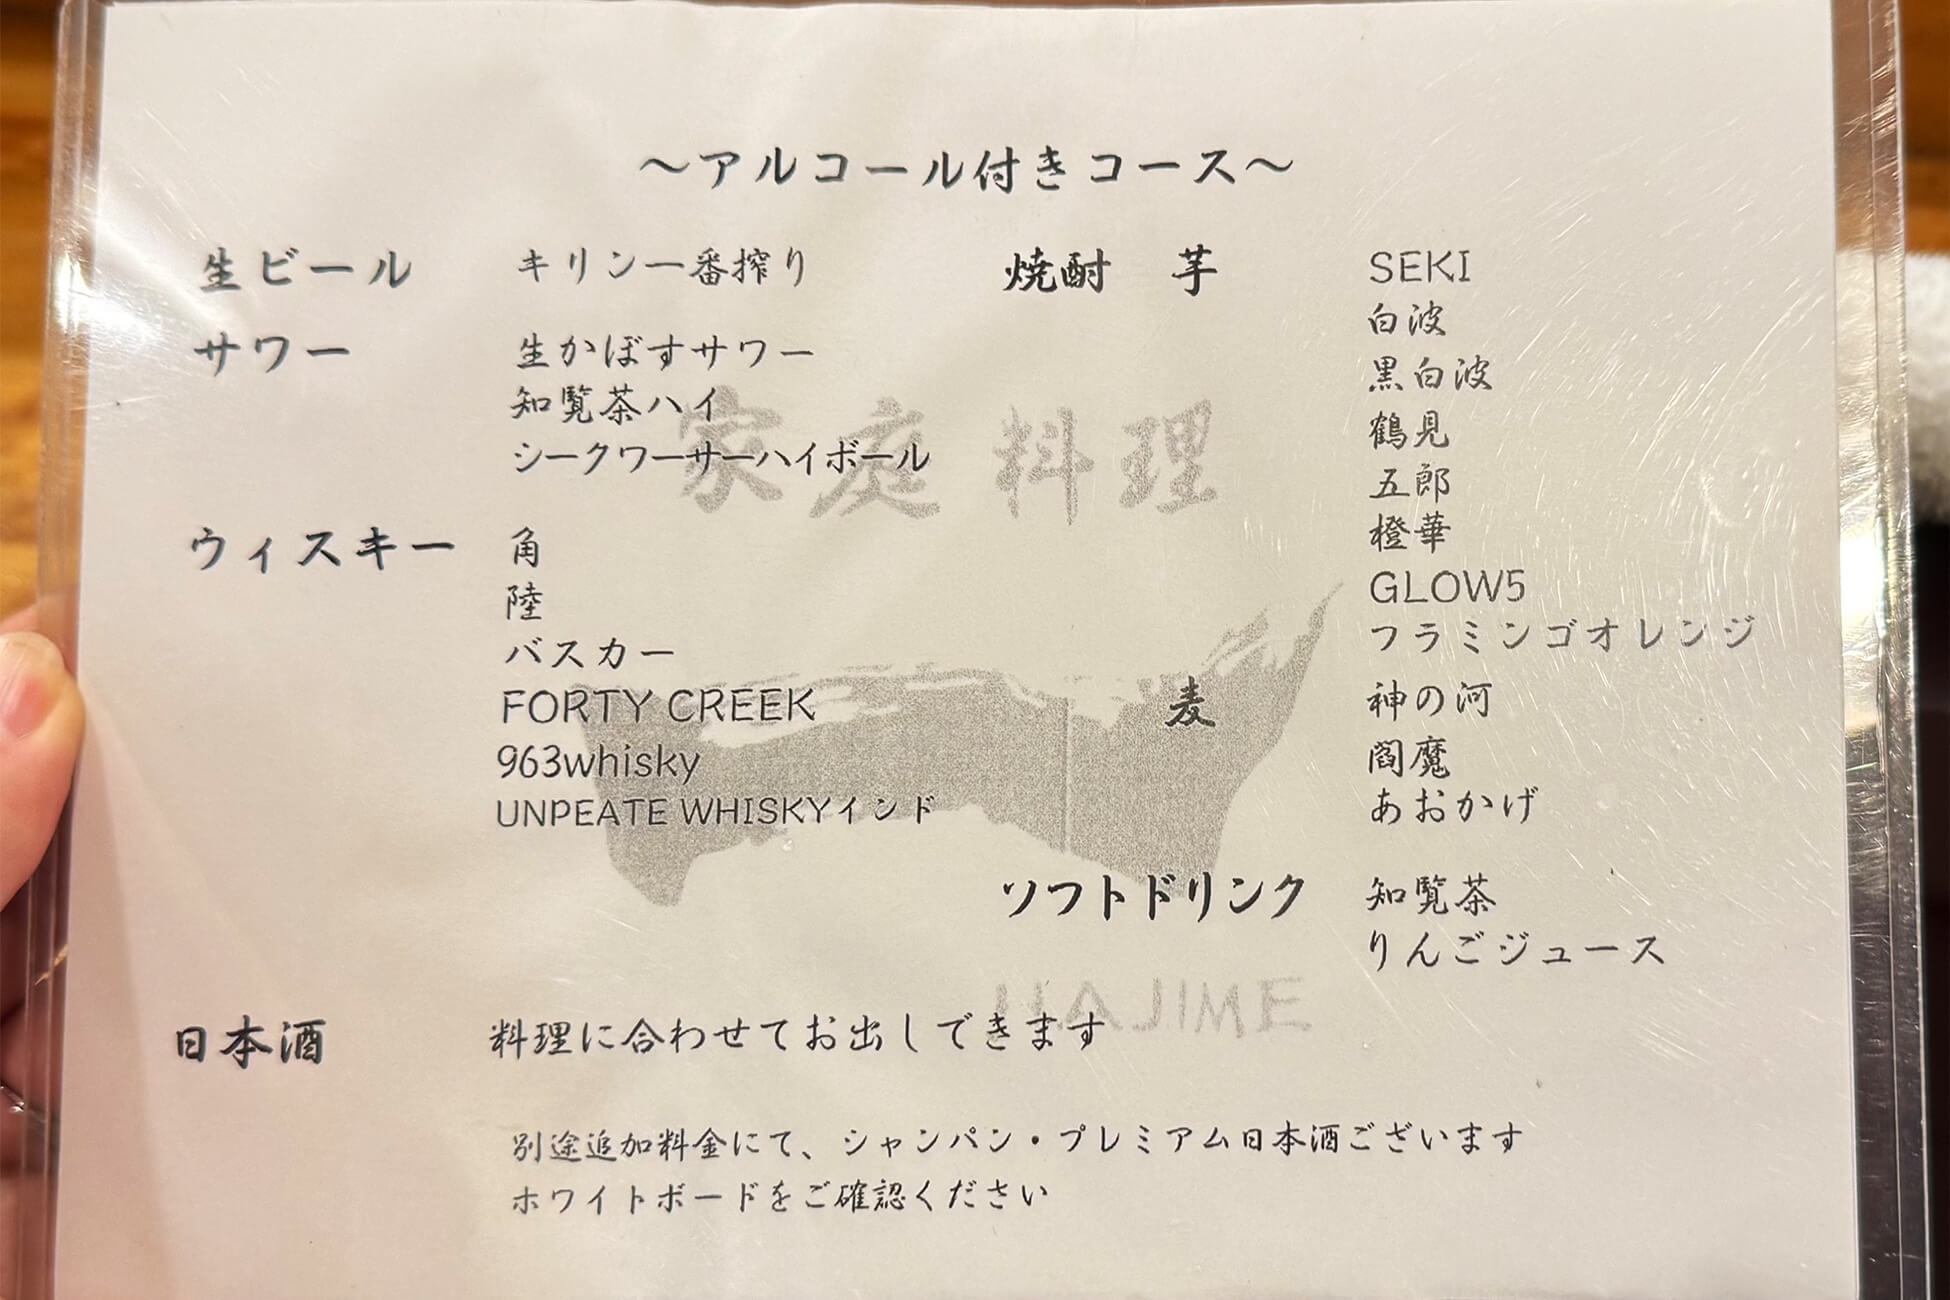 ～アルコール付きコース～
生ビール キリン一番搾り
サワー 生かぼすサワー
知覧茶ハイ
シークワーサーハイボール
ウィスキー 角
陸
バスカー
FORTY CREEK
963whisky
UNPEATE WHISKYインド
焼酎 芋 SEKI
白波
黒白波
鶴見
五郎
橙華
GLOW5
フラミンゴオレンジ
麦 神の河
閻魔
あおかげ
ソフトドリンク 知覧茶
りんごジュース
日本酒 料理に合わせてお出しできます
別途追加料金にて、シャンパン・プレミアム日本酒ございます
ホワイトボードをご確認ください
家庭料理
HAJIME